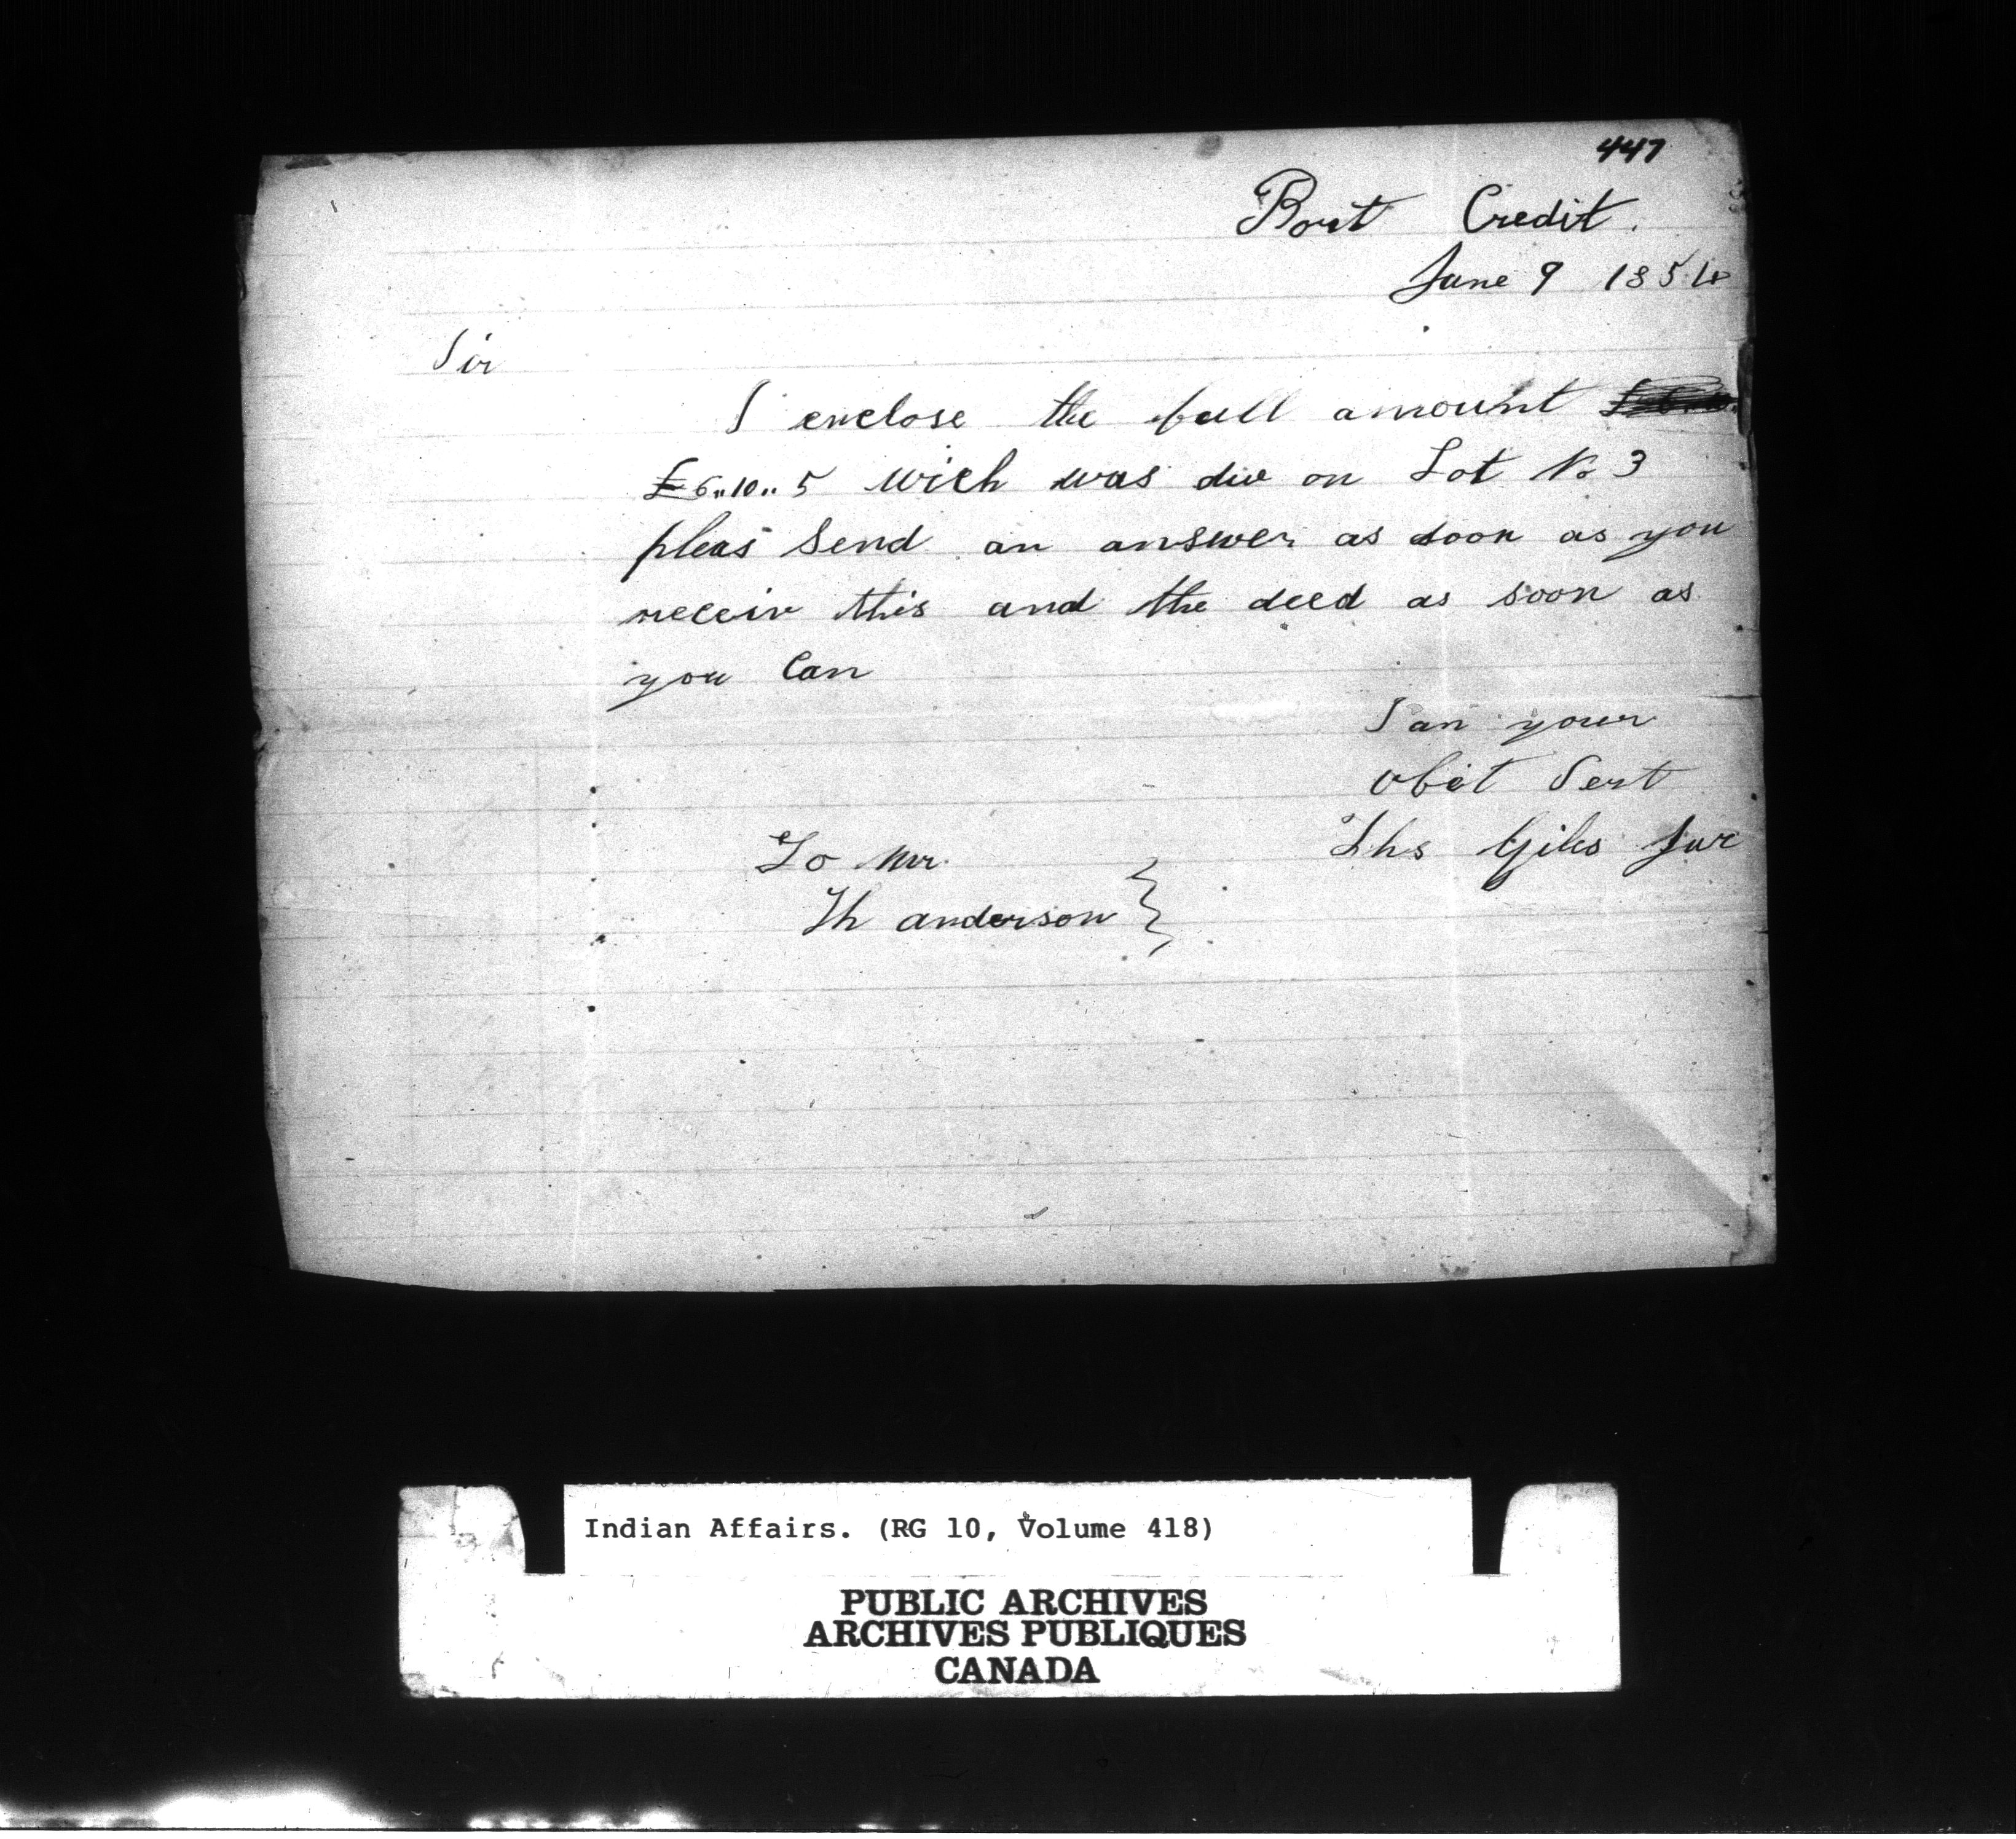 447
Port Credit.
June 9 1854
Sir
I enclose the full amount
£6"10"5 wich was due on Lot No 3
pleas Send an answer as soon as you
receiv this and the deed as soon as
you Can
I am your
obet Sert
Ths Giles Jur
To Mr
Th anderson
Indian Affairs. (RG 10, Volume 418)
PUBLIC ARCHIVES
ARCHIVES PUBLIQUES
CANADA